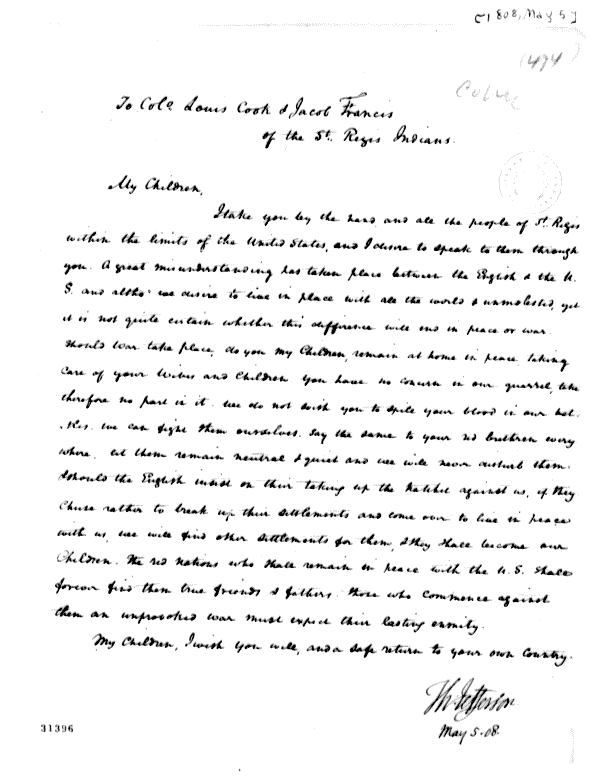 [1808, May 5]
1494
To Colo. Louis Cook & Jacob Francis
of the St. Regis Indians.
My Children,
I take you by the hand and all the people of St. Regis
within the limits of the United States, and I desire to speak to them through
you. A great misunderstanding has taken place between the English & the U.
S. and altho' we desire to live in peace with all the world & unmolested, yet
it is not quite certain whether this difference will end in peace or war.
Should War take place, do you my Children, remain at home in peace, taking
care of your Wives and Children you have no concern in our quarrel, take
therefore no part in it. we do not wish you to spill your blood in our bat-
-tles. we can fight them ourselves. Say the same to your red brethren every
where, let them remain neutral & quiet and we will never disturb them.
Should the English insist on their taking up the hatchet against us, if they
Chuse rather to break up their settlements and come over to live in peace
with us, we will find other settlements for them, & they shall become our
Children. The red nations who shall remain in peace with the U.S. shall
forever find them true friends & fathers. those who commence against
them an unprovoked war must expect their lasting enmity.
My Children, I wish you well, and a safe return to your own Country.
Th: Jefferson
May 5. 08.
31396